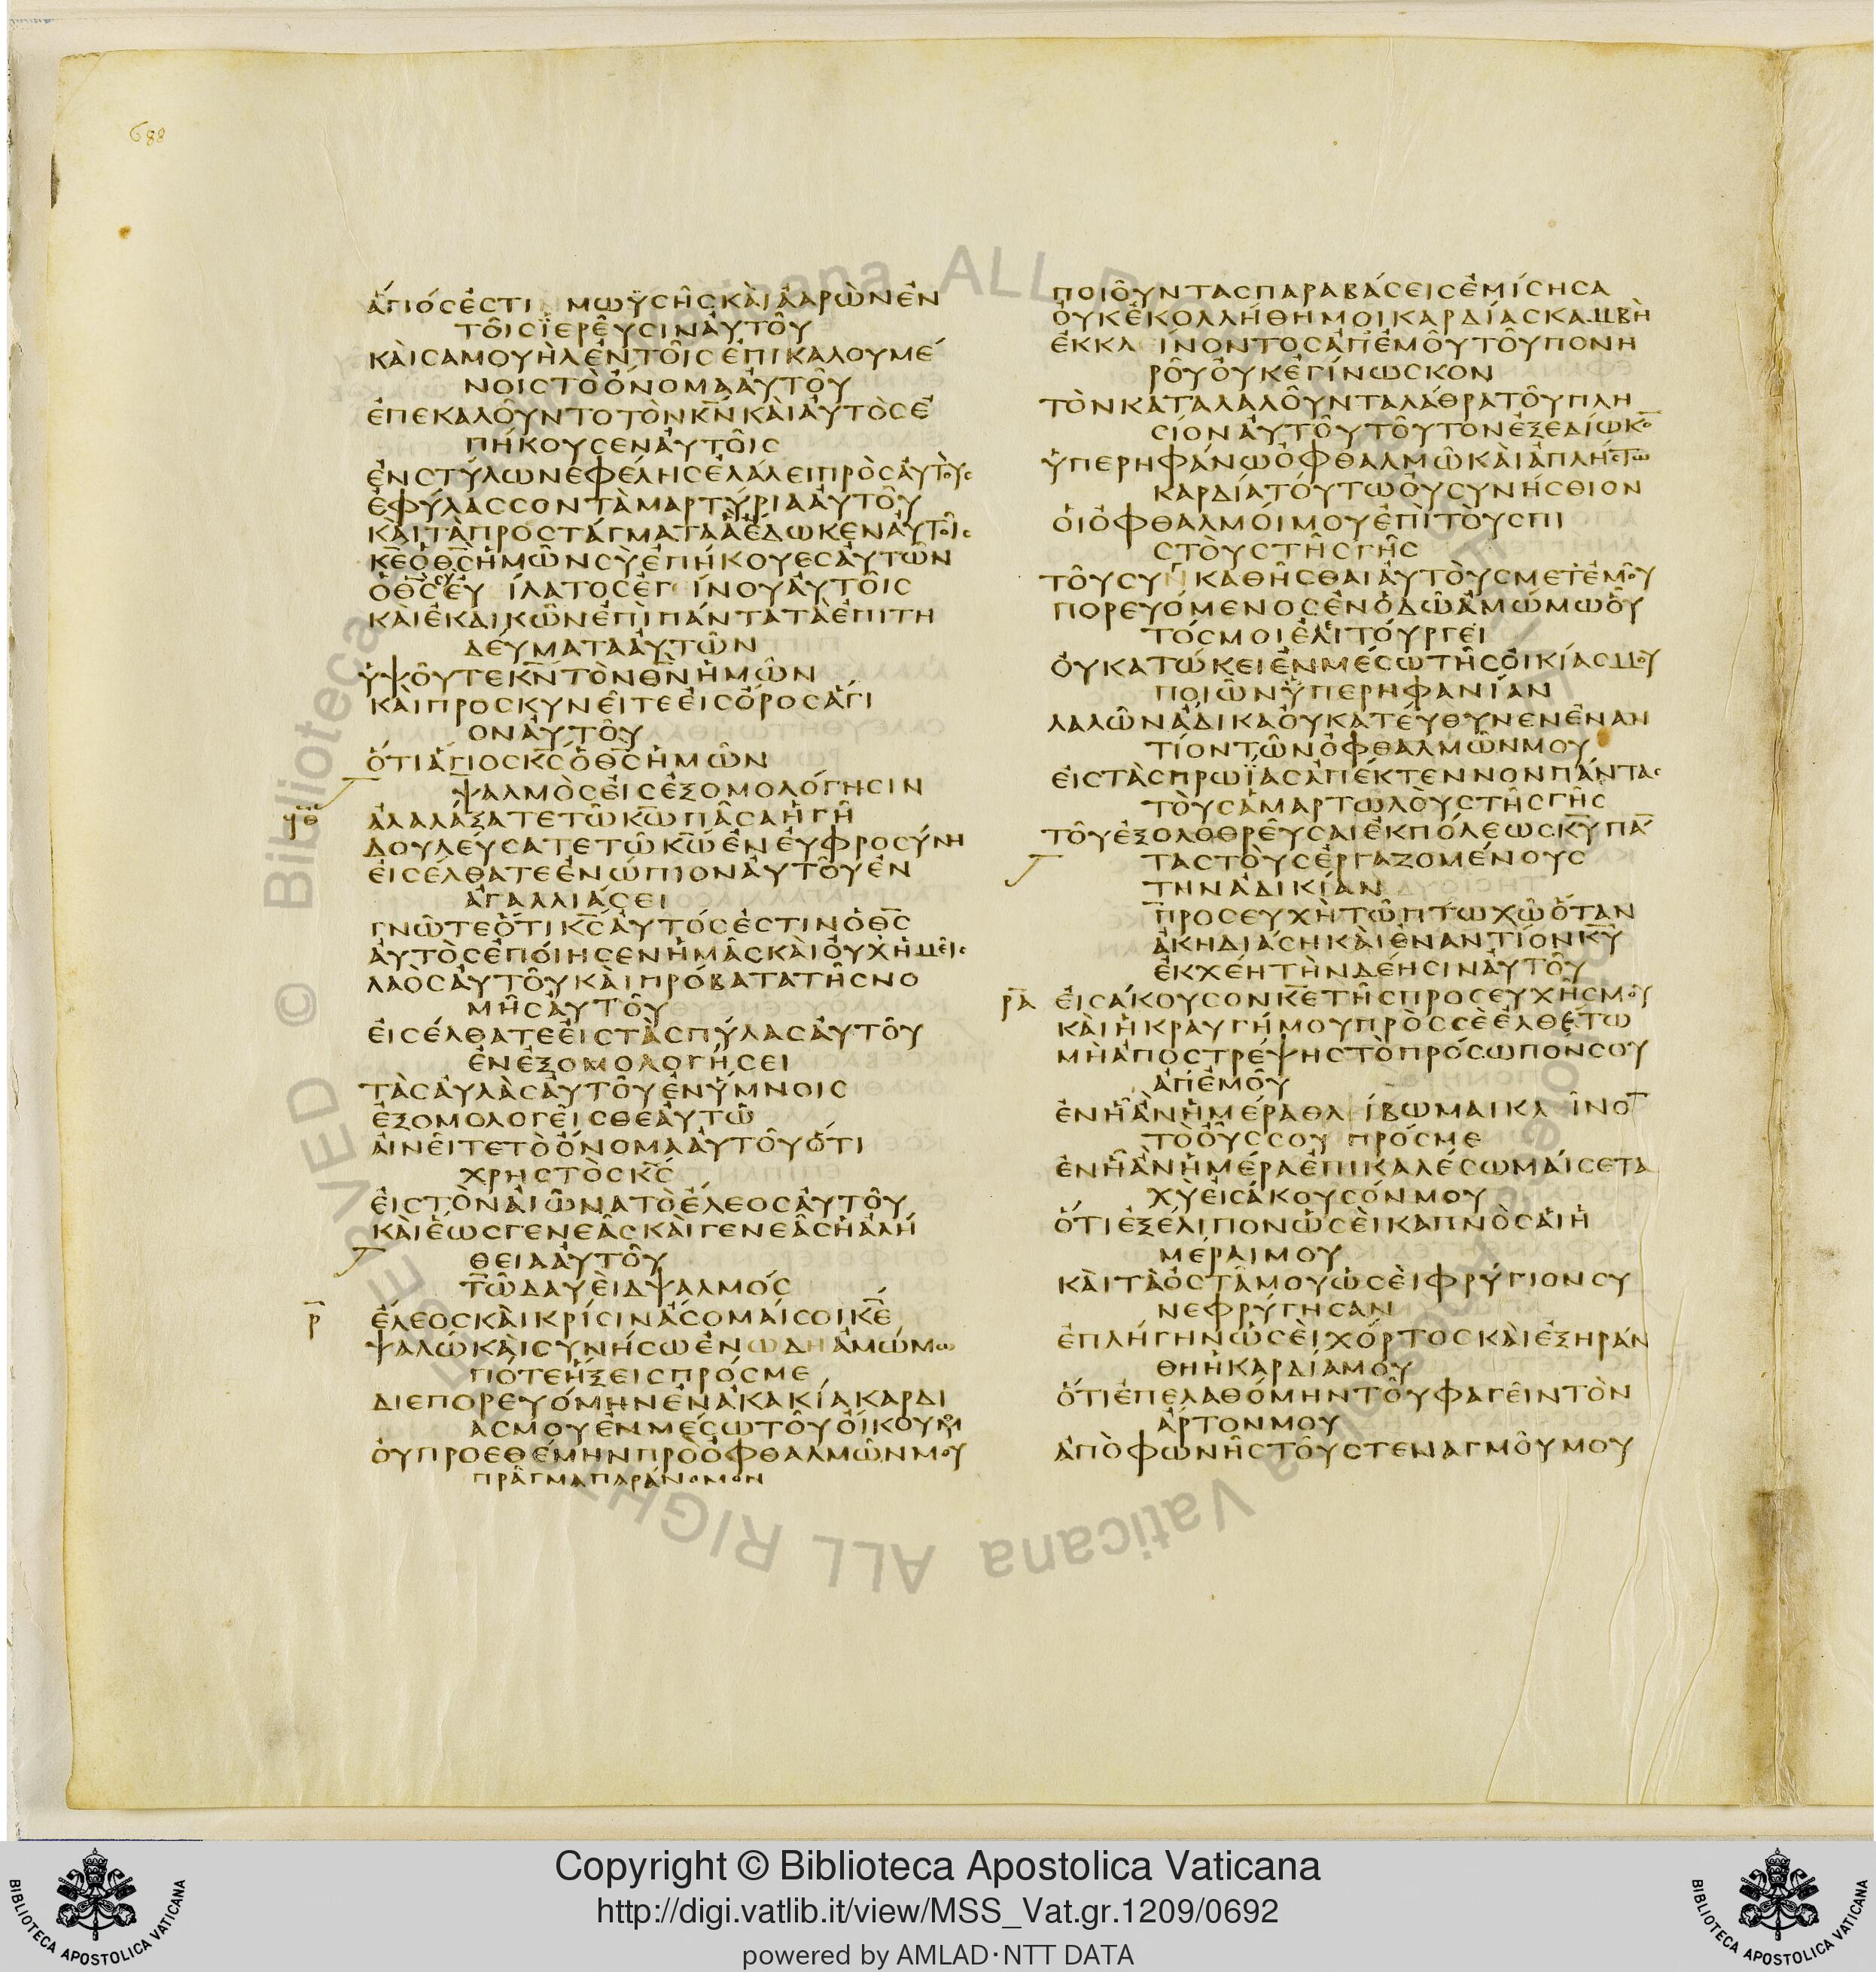 688
ἅγιόσἐστι μωϋσῆςκὰιἀαρὼνἐν
τοῖσϊερεῦσιναὐτοῦ
κὰισαμουὴλἐντοῖσἐπικαλουμέ
νοιστὸὄνομααὐτοῦ
ἐπεκαλοῦντοτὸνκ̅ν̅κὰιαὐτὸσἐ
πήκουσεναὐτοῖς
ἐνστύλωνεφέλησἐλάλειπρὸσαὐτούς
ἐφύλασσοντὰμαρτύριααὐτοῦ
κὰιτὰπροστάγματαἃἔδωκεναὐτοῖς
κ̅ε̅ὁθ̅ς̅ἡμῶνσὺἐπήκουεσαὐτῶν
ὁθ̅ς̅σὺεὐ ίλατοσἐγ ίνουαὐτοῖς
κὰιἐκδικῶνἐπὶπάνταταἐπιτη
δεύματααὐτῶν
ὑψοῦτεκ̅ν̅τὸνθ̅ν̅ἡμῶν
κὰιπροσκυνεῖτεεἰσὄροσἅγι
οναὐτοῦ
ὅτιἅγιοσκ̅ς̅ὁθ̅ς̅ἡμῶν
ψαλμὸσεἰσἐξομολόγησιν
ϟθ ἀλαλάξατετῶκ̅ω̅πᾶσαἡγῆ
δουλεύσατετῶκ̅ω̅ἐνεὐφροσύνη
εἰσέλθατεἐνώπιοναὐτοῦἐν
ἀγαλλιάσει
γνῶτεὅτικ̅ς̅αὐτόσἐστινὁθ̅ς̅
αὐτὸσἐποίησενἡμᾶσκὰιοὐχἡμεῖς
λαὸσαὐτοῦκὰιπρόβατατῆσνο
μῆσαὐτοῦ
εἰσέλθατεεἰστὰσπύλασαὐτοῦ
ἐνἐξομολογήσει
τὰσαὐλὰσαὐτοῦἐνὕμνοις
ἐξομολογεῖσθεαὐτῶ
αἰνεῖτετὸὄνομααὐτοῦὅτι
χρηστὸσκ̅ς̅
εἰστὸναἰῶνατὸἔλεοσαὐτοῦ
κὰιἕωσγενεᾶσκὰιγενεᾶσἡαλή
θειααὐτοῦ
τῶδαυεὶδψαλμός
ρ̅ ἔλεοσκὰικρίσινἄσομαίσοικ̅ε̅
ψαλῶκὰισυνήσωἐνωδηἀμώμω
πότεἥξεισπρόσμε
διεπορευόμηνἐνἀκακίακαρδί
ασμουἐνμέσωτοῦοἴκουμου
οὐπροεθέμηνπρὸὀφθαλμῶνμου
πρᾶγμαπαράνομον
ποιοῦντασπαραβάσεισἐμίσησα
οὐκἐκολλήθημοικαρδίασκαμβὴ
ἐκκλ ίνοντοσἀπἐμοῦτοῦπονη
ροῦοὐκἐγίνωσκον
τὸνκαταλαλοῦνταλάθρατοῦπλη
σίοναὐτοῦτοῦτονἐξεδίωκο̅
ὑπερηφάνωὀφθαλμῶκὰιἀπλήστω
καρδίατούτωοὐσυνήσθιον
ὁιὀφθαλμόιμουἐπὶτὸυσπι
στὸυστῆσγῆς
τοῦσυγκαθῆσθαιαὐτὸυσμετἐμοῦ
πορευόμενοσἐνὁδῶἀμώμωοὗ
τόσμοιἐλειτόυργει
οὐκατώκειἐνμέσωτῆσοἰκίασμου
ποιῶνὑπερηφανίαν
λαλῶνἄδικαοὐκατεύθυνενἐναν
τίοντῶνὀφθαλμῶνμου
εἰστὰσπρωΐασἀπέκτεννονπάντας
τὸυσἁμαρτωλὸυστῆσγῆς
τοῦἐξολοθρεῦσαιἐκπόλεωσκ̅υ̅πά
τασστὸυσἐργαζομένους
τηναδικίαν
προσευχὴτῶπτωχῶὅταν
ἀκηδιάσηκὰιἐναντίονκ̅υ̅
ἐκχέητὴνδέησιναὐτοῦ
ρ̅α̅ εἰσάκουσονκ̅ε̅τῆσπροσευχῆσμου
κὰιἡκραυγήμουπρὸσσὲἐλθέτω
μὴἀποστρέψηστὸπρόσωπόνσου
ἀπἐμοῦ
ἐνἧἂνἡμέραθλ ίβωμαικλ ῖνο̅
τὸοὖσσου πρόσμε
ἐνἧἂνἡμέραἐπικαλέσωμαίσετα
χὺεἰσάκουσόνμου
ὅτιἐξέλιπονὡσὲικαπνὸσἁιἡ
μέραιμου
κὰιτὰὀστᾶμουὡσὲιφρύγιονσυ
νεφρύγησαν
ἐπλήγηνὡσὲιχόρτοσκὰιἐξηράν
θηἡκαρδίαμου
ὅτιἐπελαθόμηντοῦφαγεῖντὸν
ἄρτονμου
ἀπὸφωνῆστοῦστεναγμοῦμου
Copyright © Biblioteca Apostolica Vaticana
http://digi.vatlib.it/view/MSS_Vat.gr.1209/0692
powered by AMLAD·NTT DATA
BIBLIOTECA APOSTOLICA VATICANA
BIBLIOTECA APOSTOLICA VATICANA